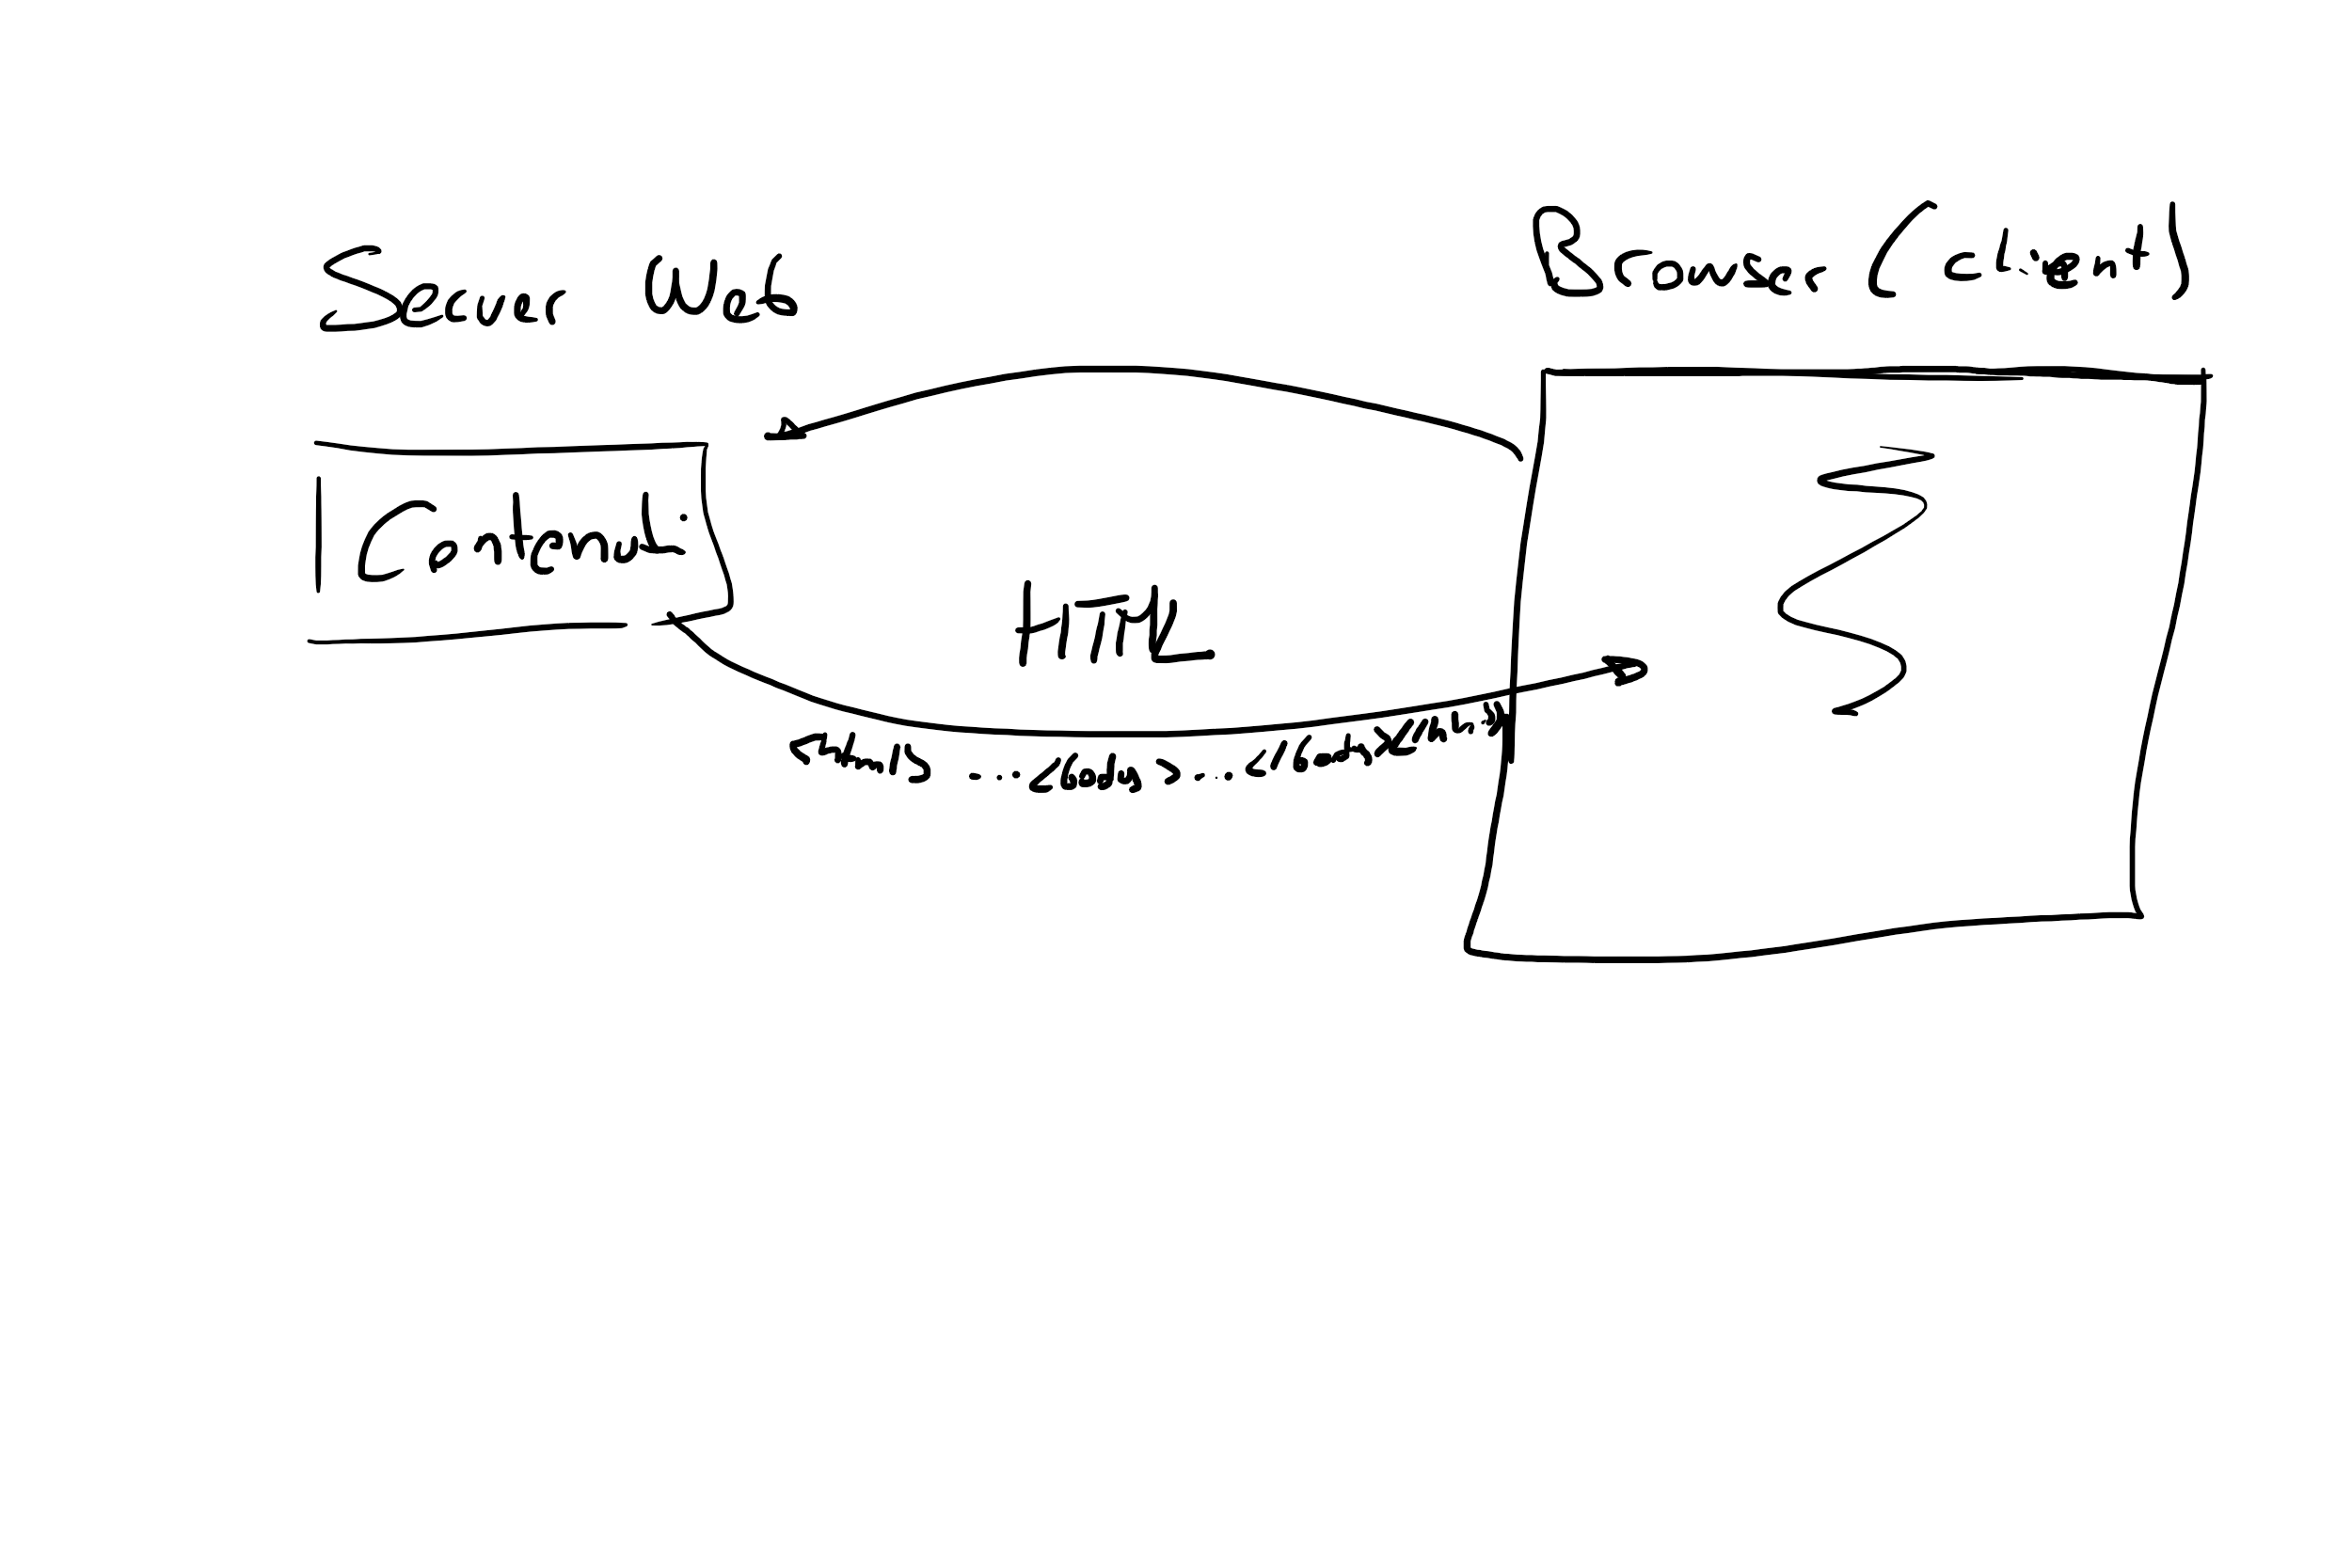 Server Web
Browser (client)
Contenuti
HTML
<html> ... <body> ... </body></html>